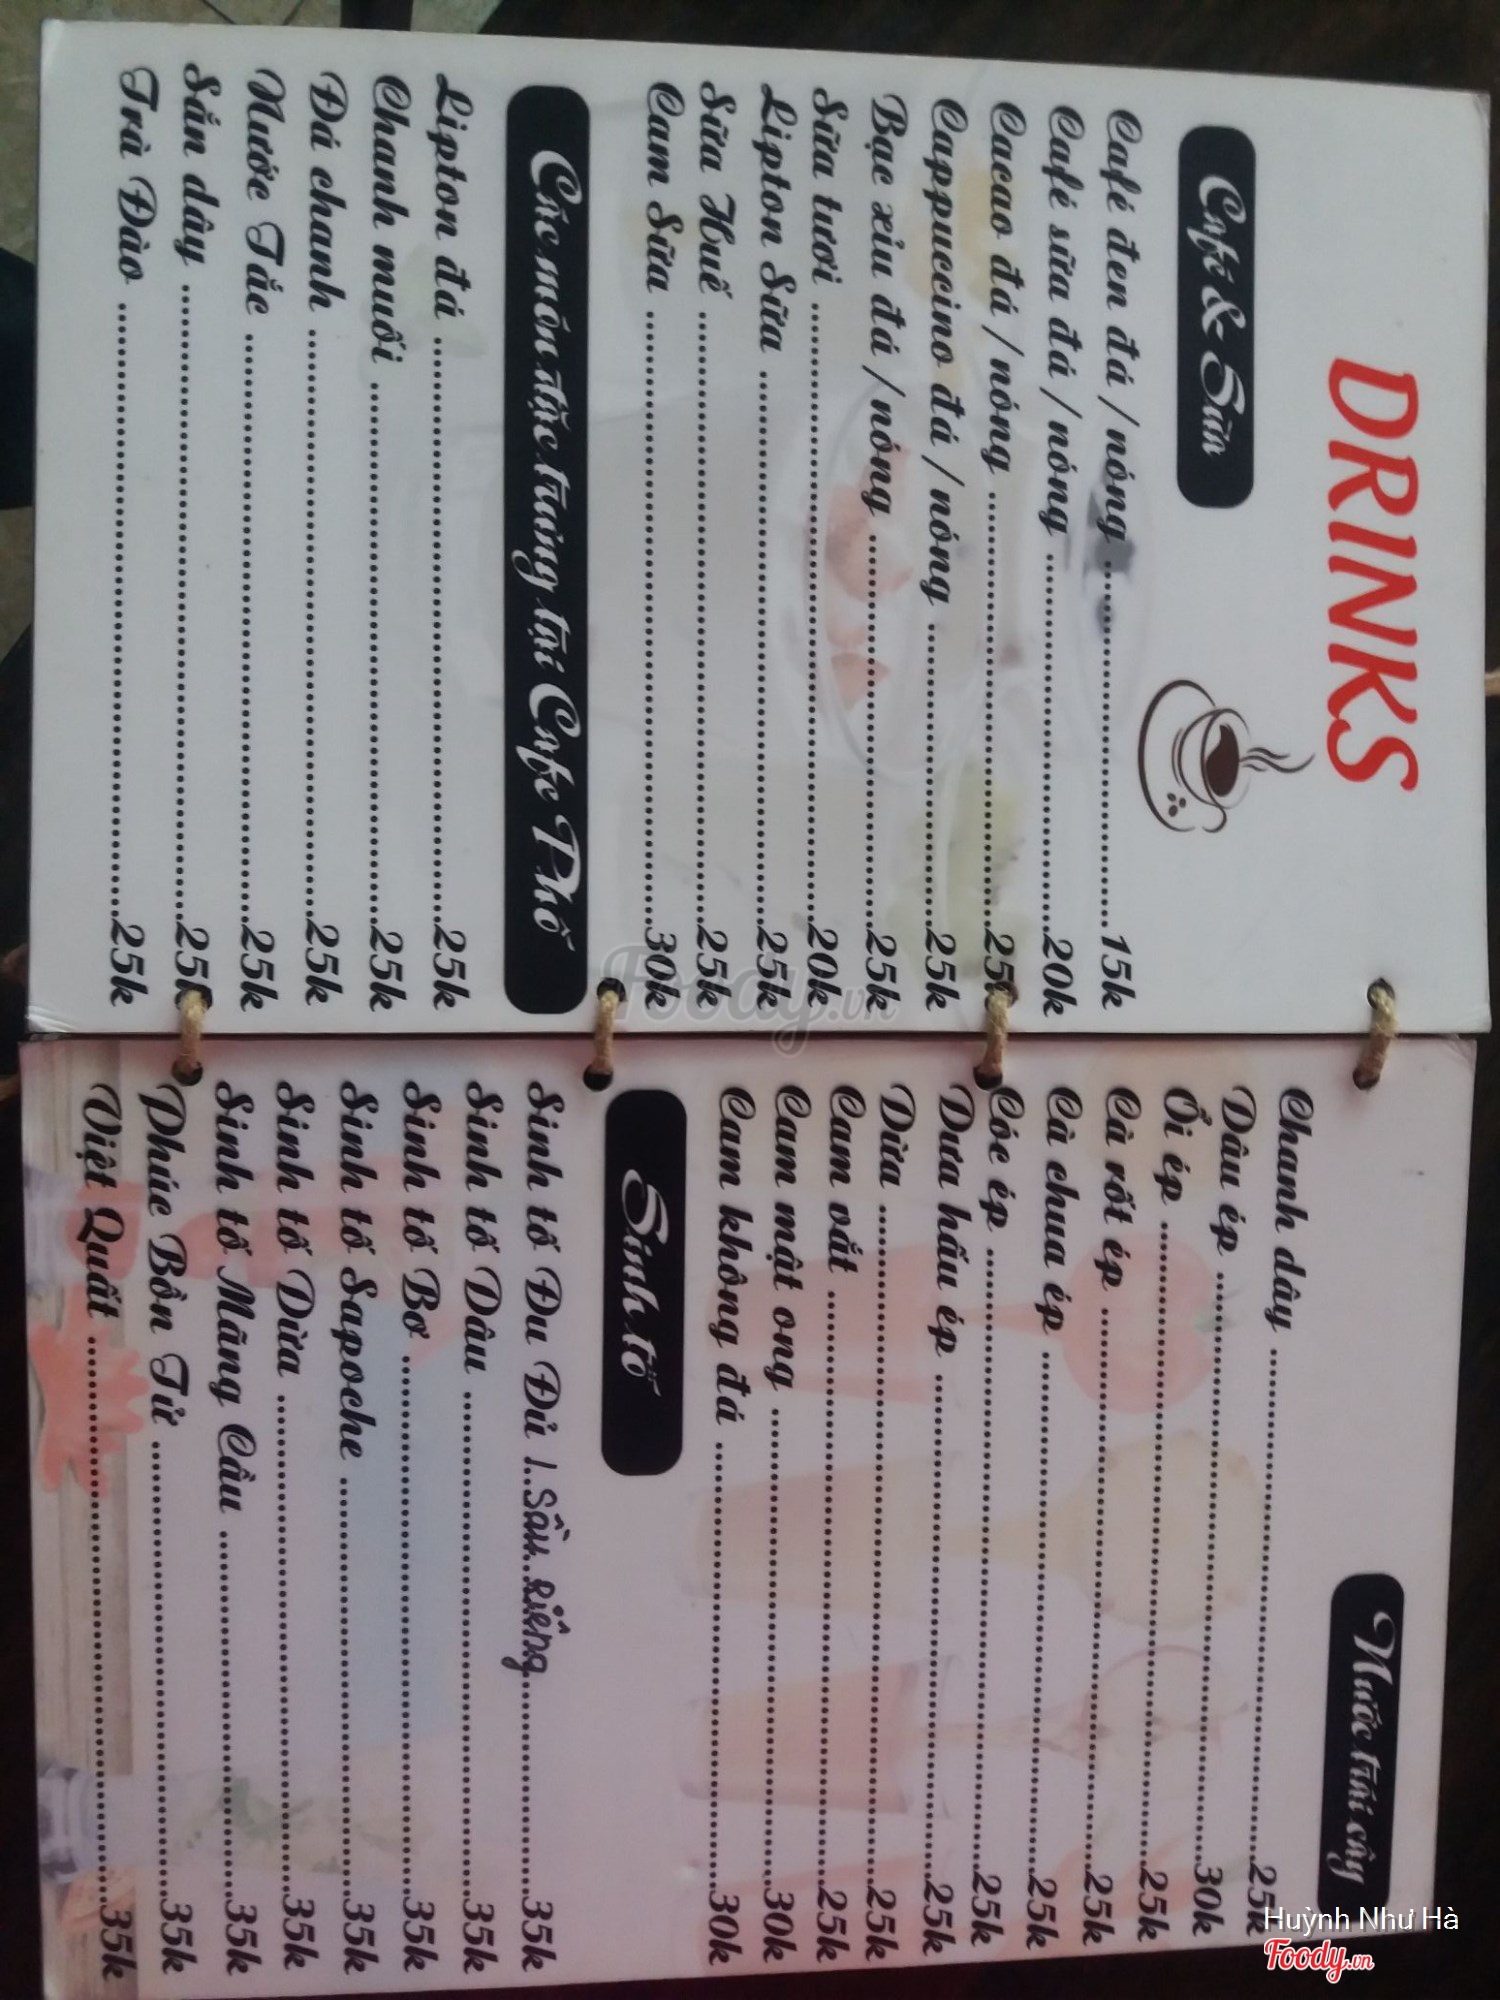 DRINKS
Café & Sữa
Café đen đá / nóng ........15k
Café sữa đá / nóng ........20k
Cacao đá / nóng ........25k
Cappuccino đá / nóng ........25k
Bạc xỉu đá / nóng ........25k
Sữa tươi ........20k
Lipton Sữa ........25k
Sữa Huế ........25k
Cam Sữa ........30k
Các món đặc trưng tại Cafe Phố
Lipton đá ........25k
Chanh muối ........25k
Đá chanh ........25k
Nước Tắc ........25k
Sắn dây ........25k
Trà Đào ........25k
Nước trái cây
Chanh dây ........25k
Dâu ép ........30k
Ổi ép ........25k
Cà rốt ép ........25k
Cà chua ép ........25k
Cóc ép ........25k
Dưa hấu ép ........25k
Dừa ........25k
Cam vắt ........25k
Cam mật ong ........30k
Cam không đá ........30k
Sinh tố
Sinh tố Đu Đủ / Sầu Riêng ........35k
Sinh tố Dâu ........35k
Sinh tố Bơ ........35k
Sinh tố Sapoche ........35k
Sinh tố Dừa ........35k
Sinh tố Mãng Cầu ........35k
Phúc Bồn Tử ........35k
Việt Quất ........35k
Foody.vn
Huỳnh Như Hà
Foody.vn